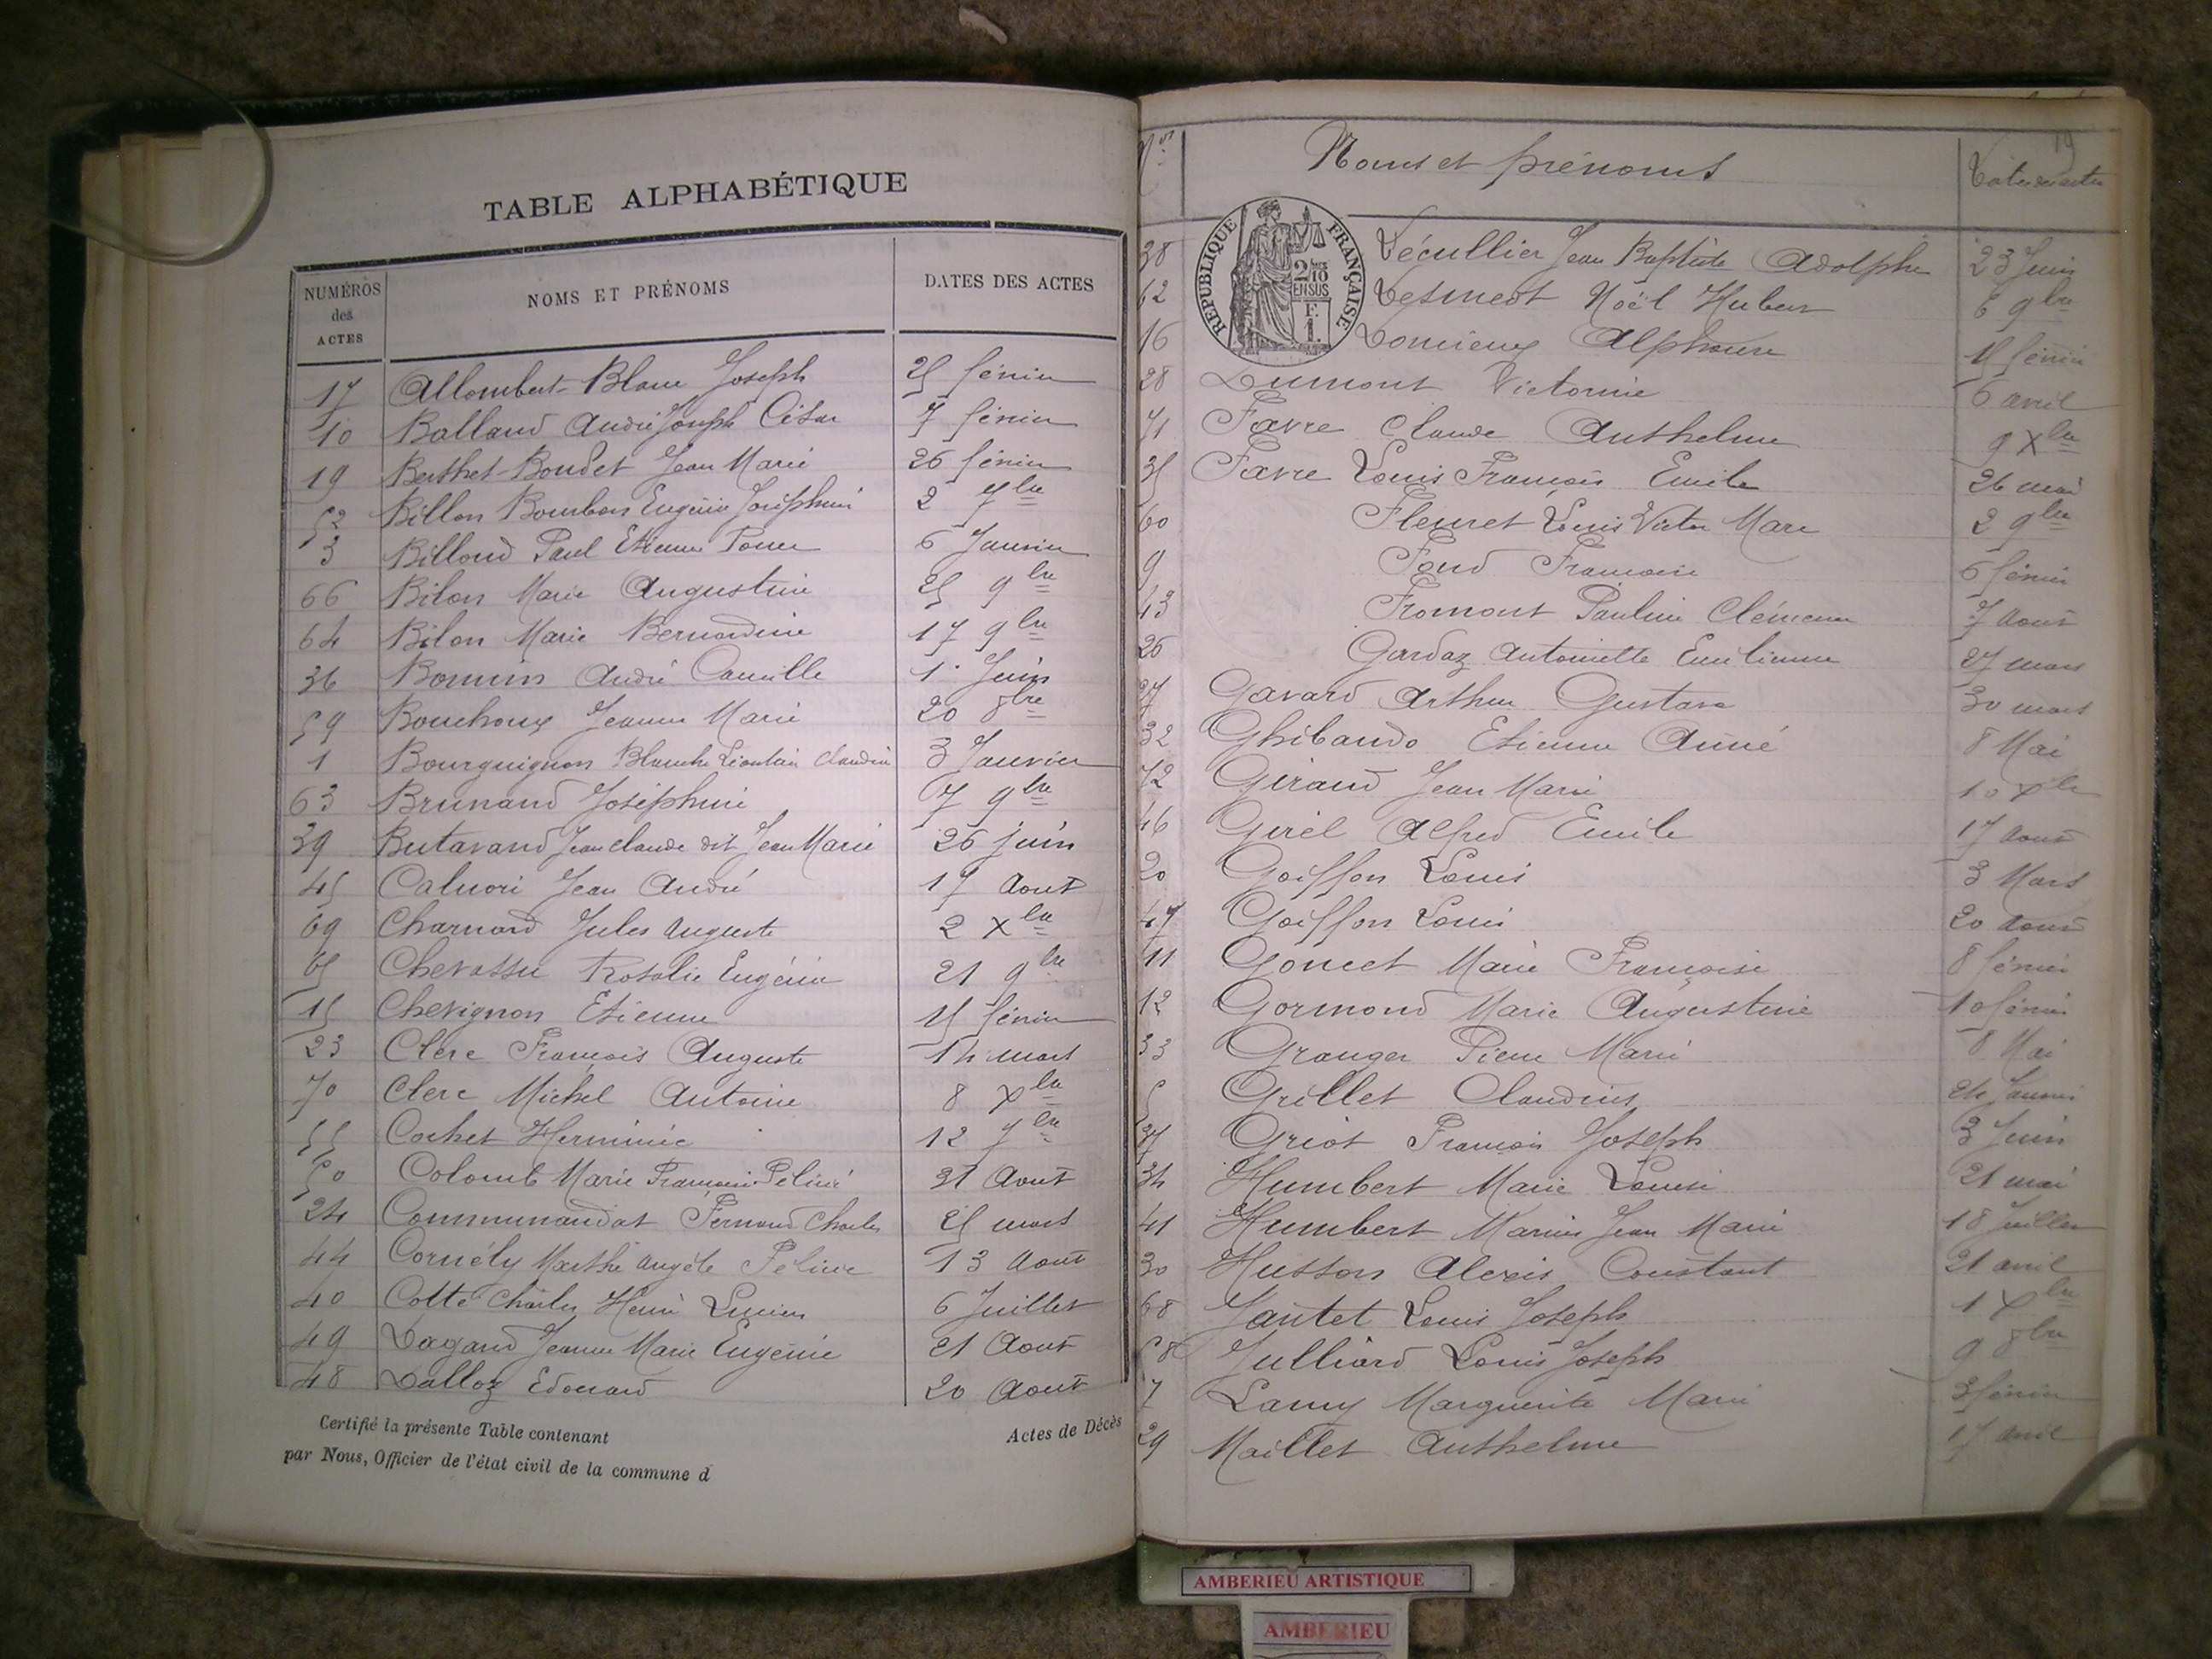 TABLE ALPHABÉTIQUE
NUMÉROS des ACTES NOMS ET PRÉNOMS DATES DES ACTES
17 Allombert-Blanc Joseph 25 février
10 Balland André Joseph César 7 février
19 Berthet-Bondet Jean Marie 26 février
52 Billon Bourbon Eugénie Joséphine 2 7bre
3 Billoud Paul Etienne 6 Janvier
66 Bilon Marie Augustine 25 9bre
64 Bilon Marie Bernardine 17 9bre
36 Bonnin André Camille 1 Juin
59 Bouchoux Jeanne Marie 20 8bre
1 Bourguignon Blanche Léontine Claudine 3 Janvier
63 Brunand Joséphine 7 9bre
39 Butavand Jean Claude dit Jean Marie 26 juin
45 Caluori Jean André 17 Aout
69 Charnard Jules Auguste 2 Xbre
65 Chevassu Rosalie Eugénie 21 9bre
15 Chevignon Etienne 15 février
23 Clerc François Auguste 14 mars
70 Clerc Michel Antoine 8 Xbre
55 Cochet Herminie 12 7bre
50 Colomb Marie Françoise 31 Aout
24 Communandat Fernand Charles 25 mars
44 Cornély Marthe Angèle 13 Aout
40 Cotte Charles Henri Lucien 6 Juillet
49 Dagand Jeanne Marie Eugénie 21 Aout
48 Dalloz Edouard 20 Aout
Certifié la présente Table contenant Actes de Décès
par Nous, Officier de l'état civil de la commune d
19
Nos Noms et prénoms Dates des actes
RÉPUBLIQUE FRANÇAISE
2/10 EN SUS
F. 1.
38 Décullier Jean Baptiste Adolphe 23 Juin
62 Desmest Noël Hubert 6 9bre
16 Domieux Alphonse 15 février
28 Dumont Victorine 6 avril
71 Favre Claude Anthelme 9 Xbre
35 Favre Louis François Emile 26 mai
60 Fleuret Louis Victor Marc 2 9bre
9 Fond Françoise 6 février
43 Fromont Pauline Clémence 7 Aout
26 Gardaz Antoinette Emilienne 27 mars
27 Gavard Arthur Gustave 30 mars
32 Ghibaudo Etienne Aimé 8 Mai
72 Giraud Jean Marie 10 Xbre
46 Girel Alfred Emile 17 Aout
20 Goiffon Louis 3 Mars
47 Goiffon Louis 20 Aout
11 Goncet Marie Françoise 8 février
12 Gormond Marie Augustine 10 février
33 Granger Pierre Marie 8 Mai
5 Grillet Claudius 24 Janvier
37 Griot François Joseph 3 Juin
34 Humbert Marie Louise 21 mai
41 Humbert Marius Jean Marie 18 Juillet
30 Husson Alexis Constant 21 avril
68 Jantet Louis Joseph 1 Xbre
58 Julliard Louis Joseph 9 8bre
7 Lamy Marguerite Marie 3 février
29 Maillet Anthelme 17 avril
AMBERIEU ARTISTIQUE
AMBERIEU